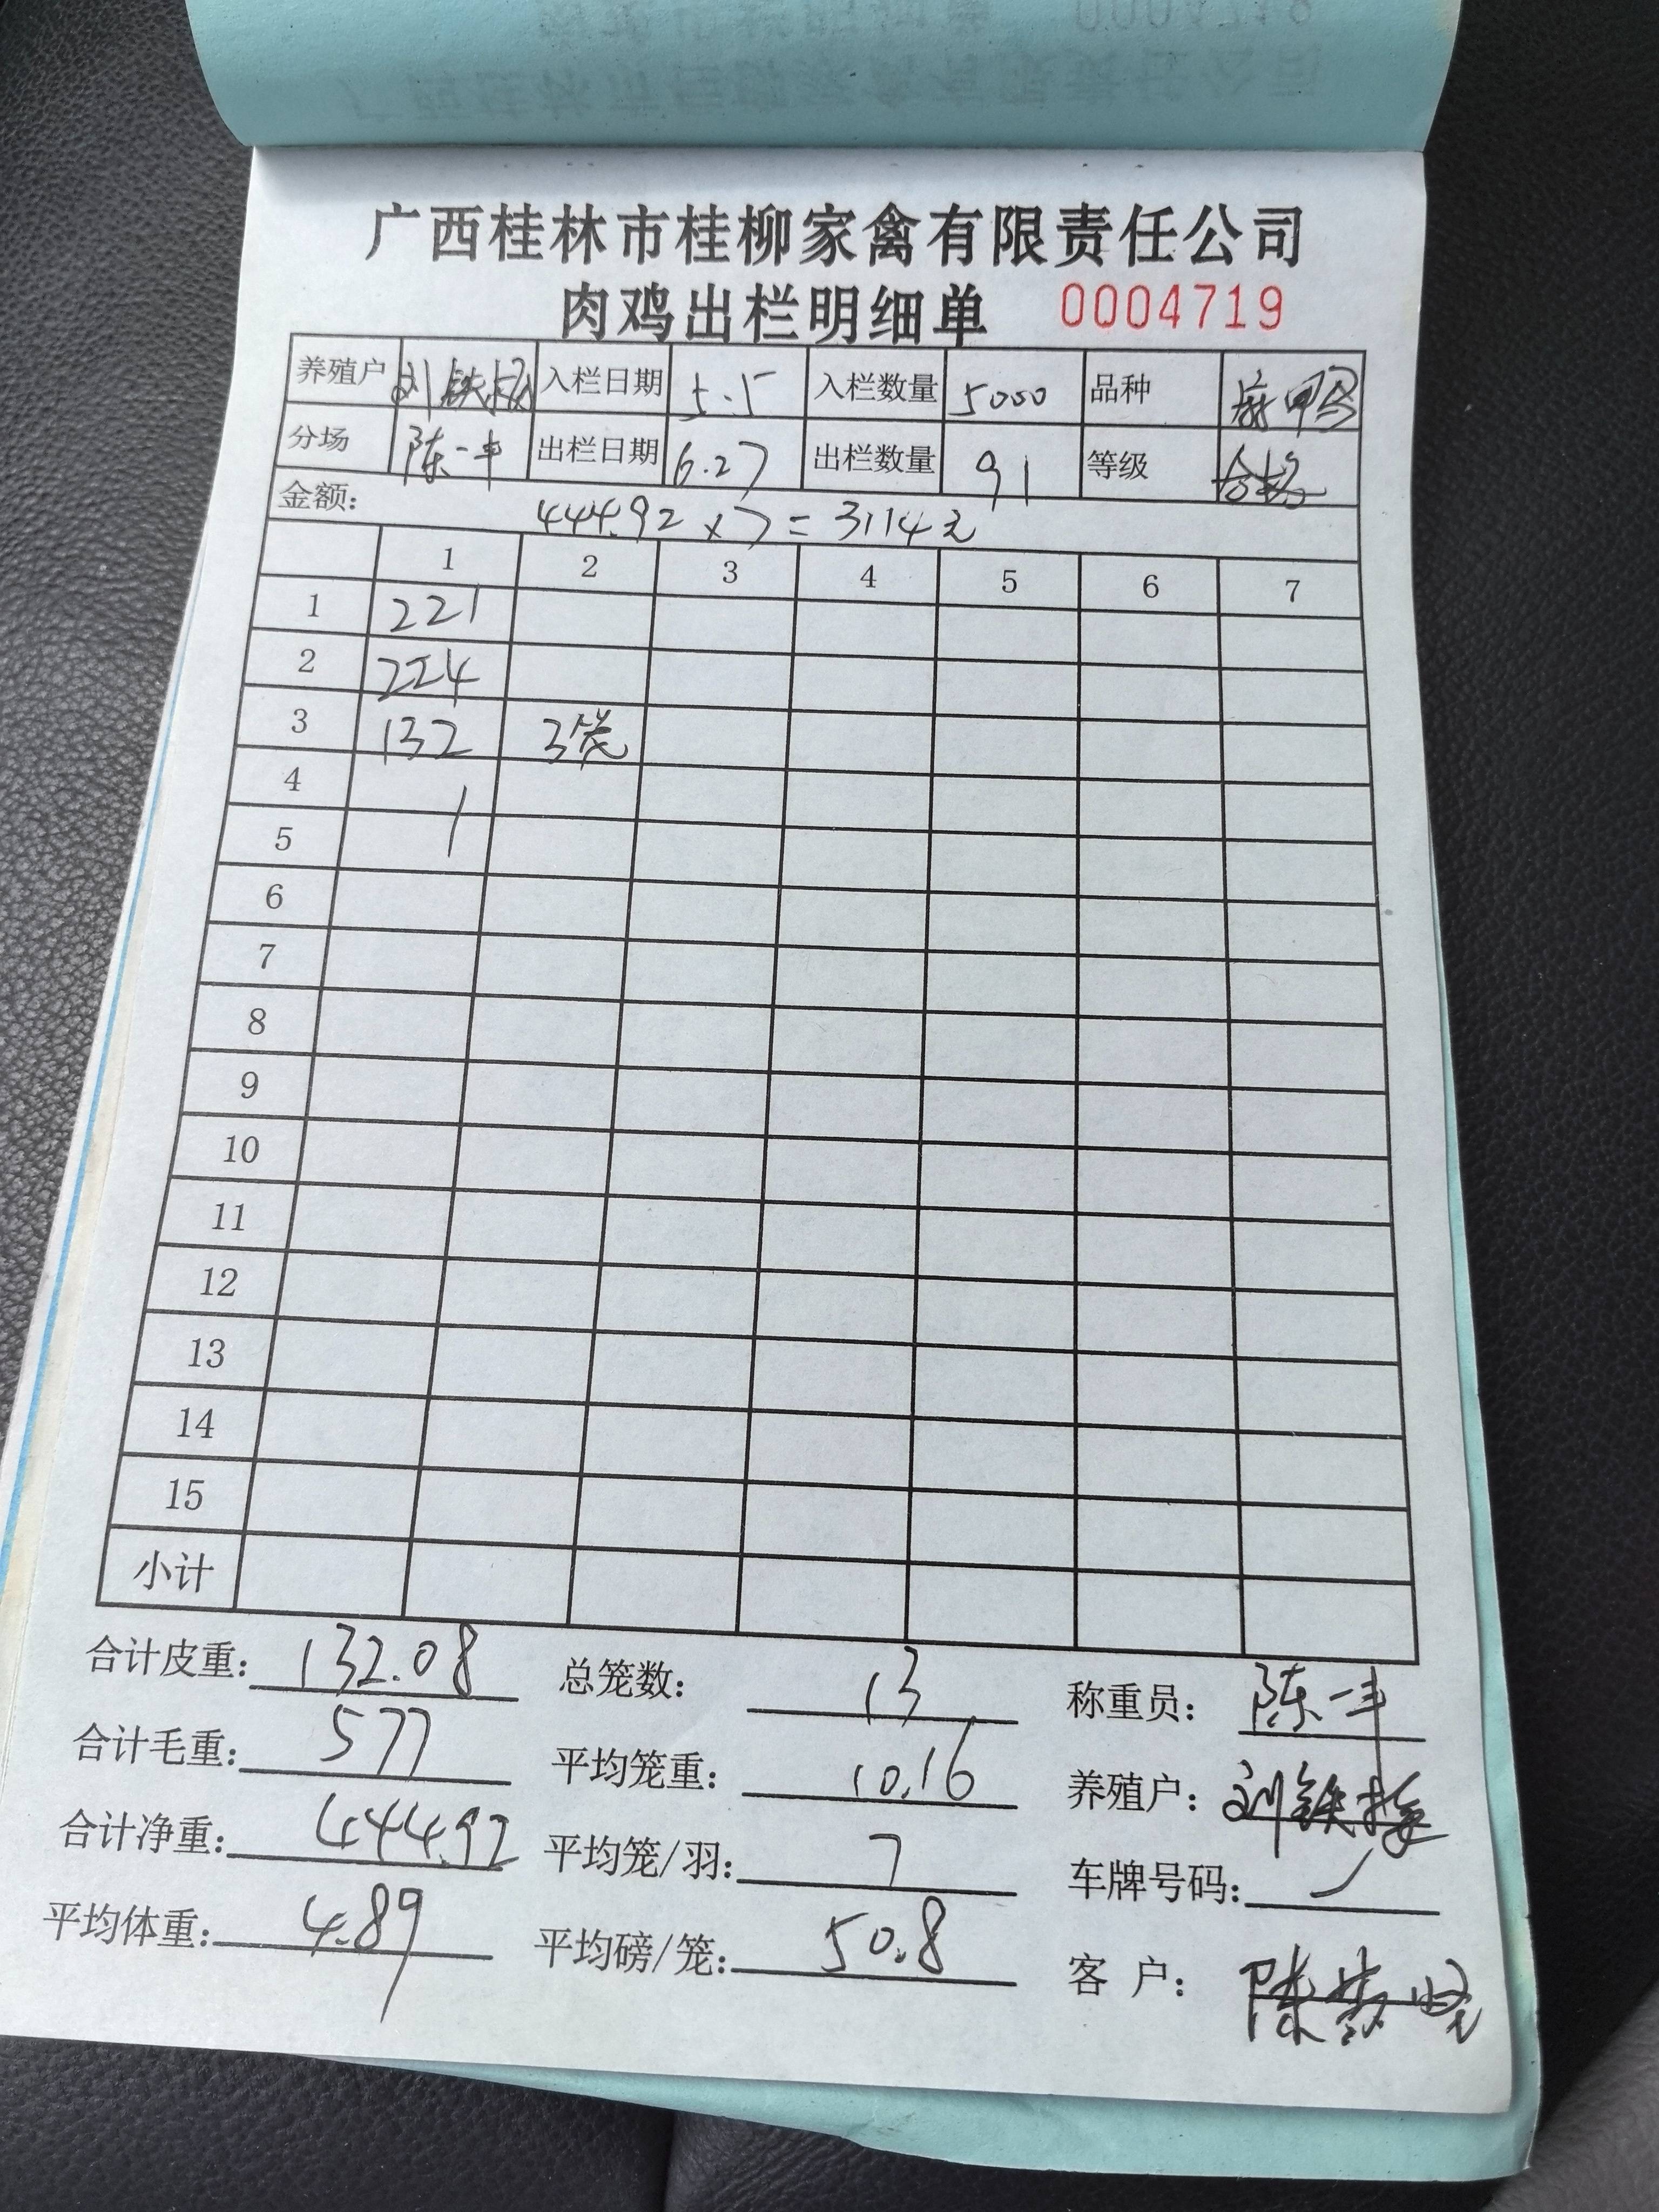 广西桂林市桂柳家禽有限责任公司
肉鸡出栏明细单 0004719
养殖户 刘铁梅 入栏日期 5.5 入栏数量 5000 品种
分场 陈一丰 出栏日期 6.27 出栏数量 91 等级 合格
金额: 444.92 x 7 = 3114元
1 2 3 4 5 6 7
1 221
2 224
3 132 3笼
4
5
6
7
8
9
10
11
12
13
14
15
小计
合计皮重: 132.08 总笼数: 13 称重员: 陈一丰
合计毛重: 577 平均笼重: 10.16 养殖户: 刘铁梅
合计净重: 444.92 平均笼/羽: 7 车牌号码:
平均体重: 4.89 平均磅/笼: 50.8 客 户: 陈